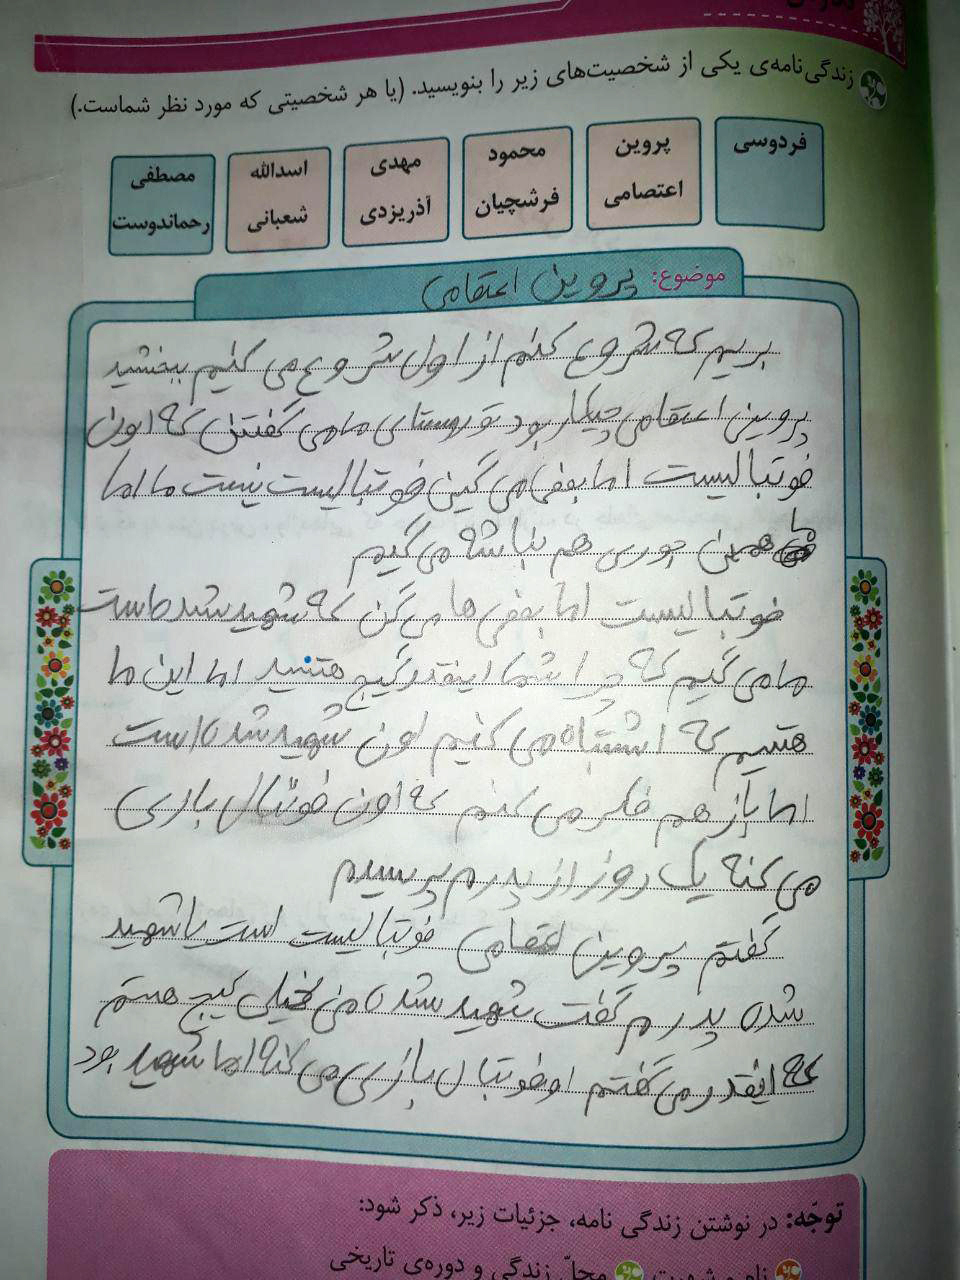 زندگی‌نامه‌ی یکی از شخصیت‌های زیر را بنویسید. (یا هر شخصیتی که مورد نظر شماست.)
فردوسی
پروین اعتصامی
محمود فرشچیان
مهدی آذریزدی
اسدالله شعبانی
مصطفی رحماندوست
موضوع: پروین اعتقامی
بریم که شروع کنم از اول شروع می کنیم ببخشید
پروین اعتقامی چیکار بود تو روستای ما می گفتن که اون
فوتبالیست اما بعضی می گین فوتبالیست نیست ما اما
همین جوری هم بناشه می گیم
فوتبالیست اما بعضی ها می گن که شهید شده است
ما می گیم که چرا شما اینقدر گیج هتنید اما این ما
هتیم که اشتباه می کنیم اون شهید شده است
اما باز هم فکر می کنم که اون فوتبال بازی
می کنه یک روز از پدرم پرسیدم
گفتم پروین اعتقامی فوتبالیست است یا شهید
شده پدرم گفت شهید شده من خیلی گیج هستم
که انقدر می گفتم او فوتبال بازی می کنه اما شهید بود
توجّه: در نوشتن زندگی نامه، جزئیات زیر، ذکر شود:
نام و شهرت محلّ زندگی و دوره‌ی تاریخی